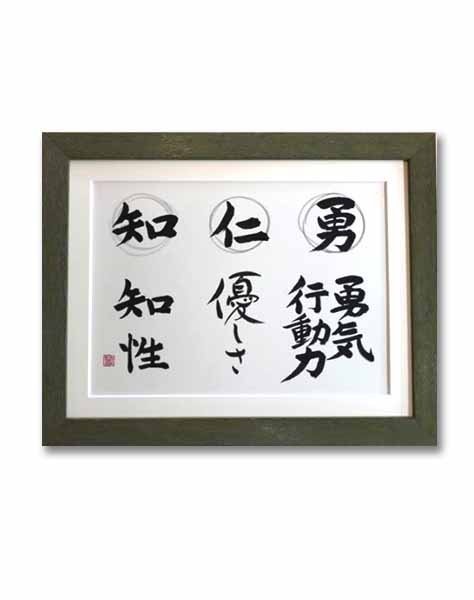 勇
勇気
行動力
仁
優しさ
知
知性